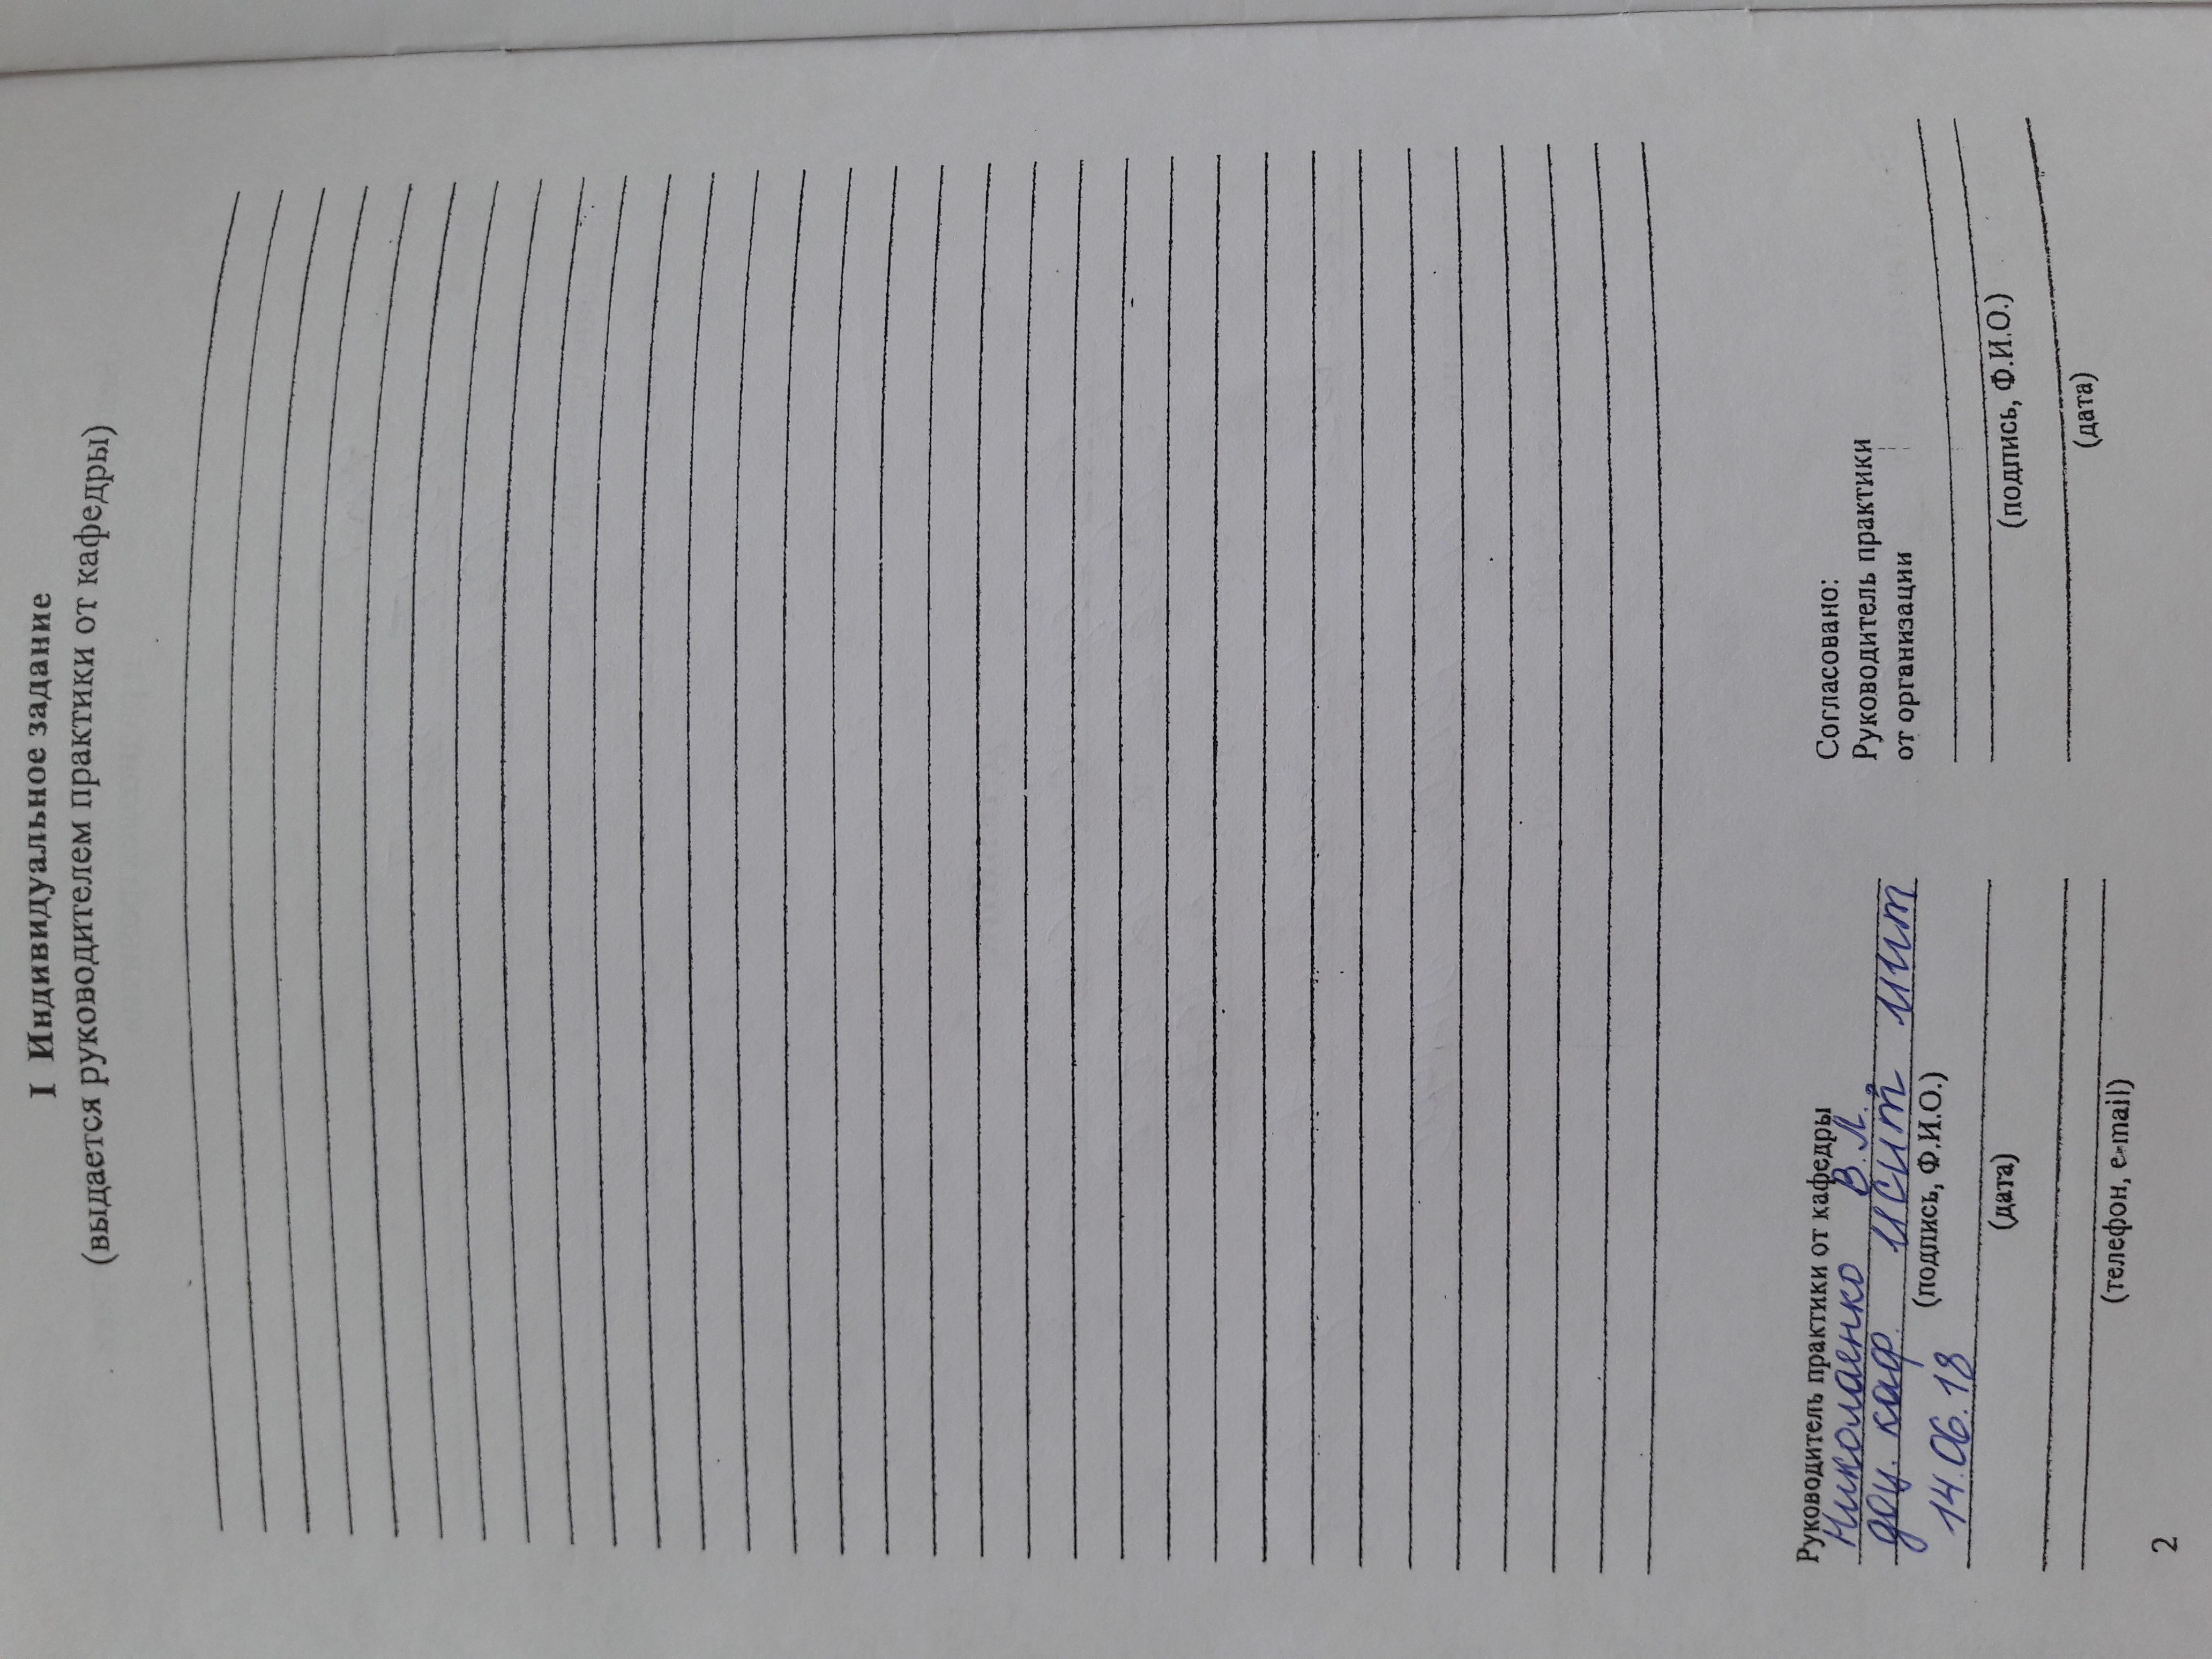 I Индивидуальное задание
(выдается руководителем практики от кафедры)
Руководитель практики от кафедры
Николаенко В.Л.,
доц. каф. ИСиТ ИИТ
(подпись, Ф.И.О.)
14.06.18
(дата)
(телефон, e-mail)
Согласовано:
Руководитель практики
от организации
(подпись, Ф.И.О.)
(дата)
2